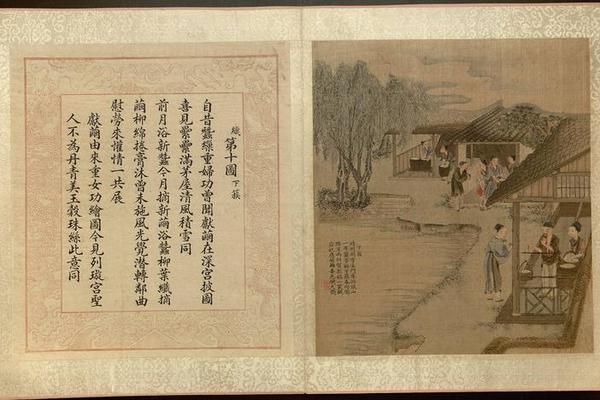 織 第十圖 下蔟
自昔蠶繅重婦功曾聞獻繭在深宮披圖
喜見纍纍滿茅屋清風積雪同
前月浴新蠶今月摘新繭浴蠶柳葉纖摘
繭柳綿捲膏沐曾未施風光覺潛轉鄰曲
慰勞來懽情一共展
獻繭由來重女功繪圖今見列璇宮聖
人不為丹青美玉縠珠絲此意同